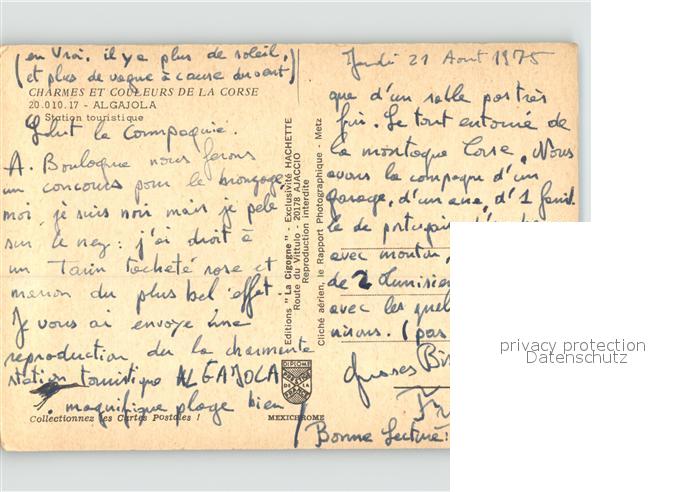 (en Vrai, il y a plus de soleil,
et plus de vague à cause du vent)
CHARMES ET COULEURS DE LA CORSE
20.010.17 - ALGAJOLA
Station touristique
Salut la Compagnie.
A. Boulogne nous ferons
un concours pour le bronzage
moi, je suis noir mais je pèle
sur le nez : j'ai droit à
un Tarin tacheté rose et
marron du plus bel effet.
Je vous ai envoyé une
reproduction de la charmante
station touristique ALGAJOLA
magnifique plage bien
Collectionnez les Cartes Postales !
MEXICHROME
Editions "La Cigogne" - Exclusivité HACHETTE
Route du Vittulo - 20178 AJACCIO
Reproduction interdite
Cliché aérien, le Rapport Photographique - Metz
DIPLOME
DE LA
Jeudi 21 Aout 1975
que d'un sable pas très
fin. Le tout entouré de
la montagne Corse. Nous
avons la compagnie d'un
garage, d'un ane, d'1 famil
le de
avec mouton,
de 2 Tunisien
avec les quel
nisons. (pas
Grosses Bis
Bonne lecture!
privacy protection
Datenschutz